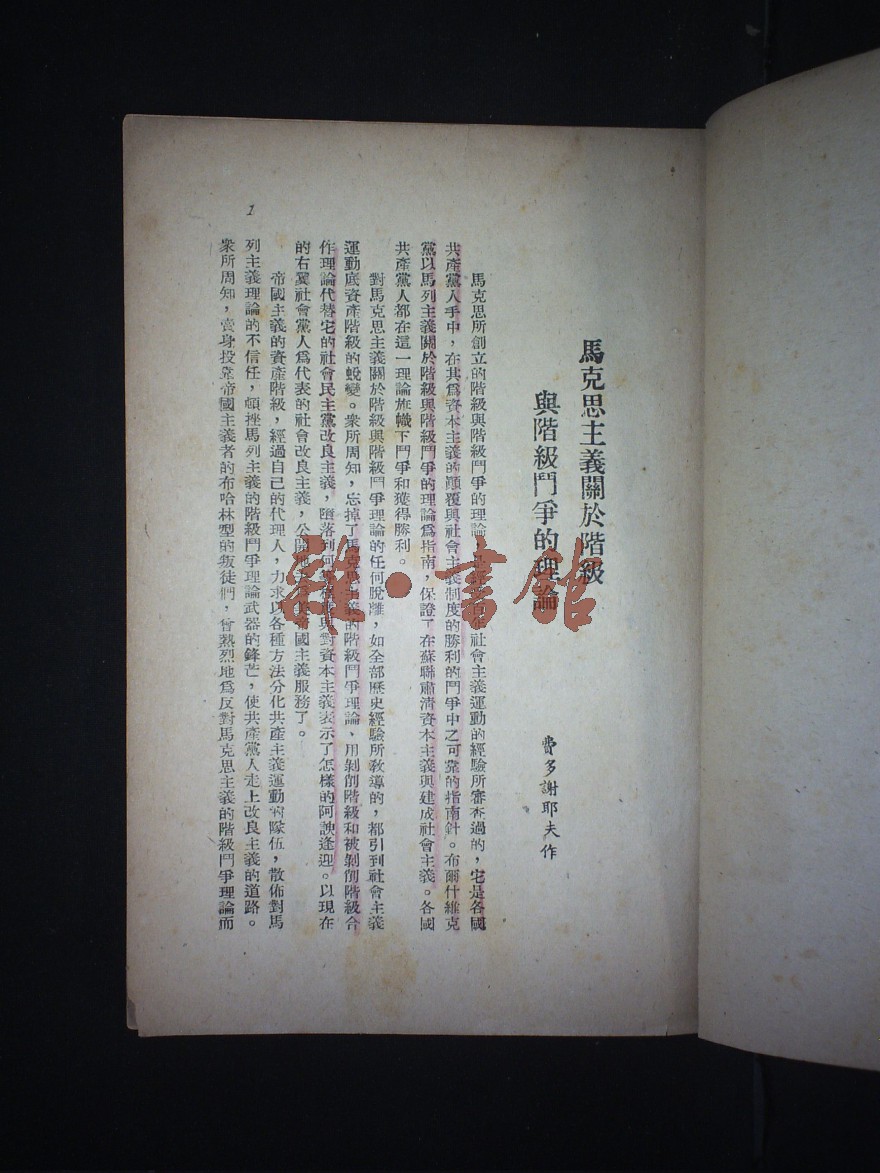 馬克思主義關於階級
與階級鬥爭的理論
費多謝耶夫作
馬克思所創立的階級與階級鬥爭的理論社會主義運動的經驗所審查過的，它是各國
共產黨人手中，在其爲資本主義的顚覆與社會主義制度的勝利的鬥爭中之可靠的指南針。布爾什維克
黨以馬列主義關於階級與階級鬥爭的理論爲指南，保證了在蘇聯肅清資本主義與建成社會主義。各國
共產黨人都在這一理論旗幟下鬥爭和獲得勝利。
對馬克思主義關於階級與階級鬥爭理論的任何脫離，如全部歷史經驗所敎導的，都引到社會主義
運動底資產階級的蛻變。衆所周知，忘掉了馬克思主義的階級鬥爭理論、用剝削階級和被剝削階級合
作理論代替它的社會民主黨改良主義，墮落到何對資本主義表示了怎樣的阿諛逢迎。以現在
的右翼社會黨人爲代表的社會改良主義，公開地帝國主義服務了。
帝國主義的資產階級，經過自己的代理人，力求以各種方法分化共產主義運動的隊伍，散佈對馬
列主義理論的不信任，頓挫馬列主義的階級鬥爭理論武器的鋒芒，使共產黨人走上改良主義的道路。
衆所周知，賣身投靠帝國主義者的布哈林型的叛徒們，曾熱烈地爲反對馬克思主義的階級鬥爭理論而
1
雜·書館